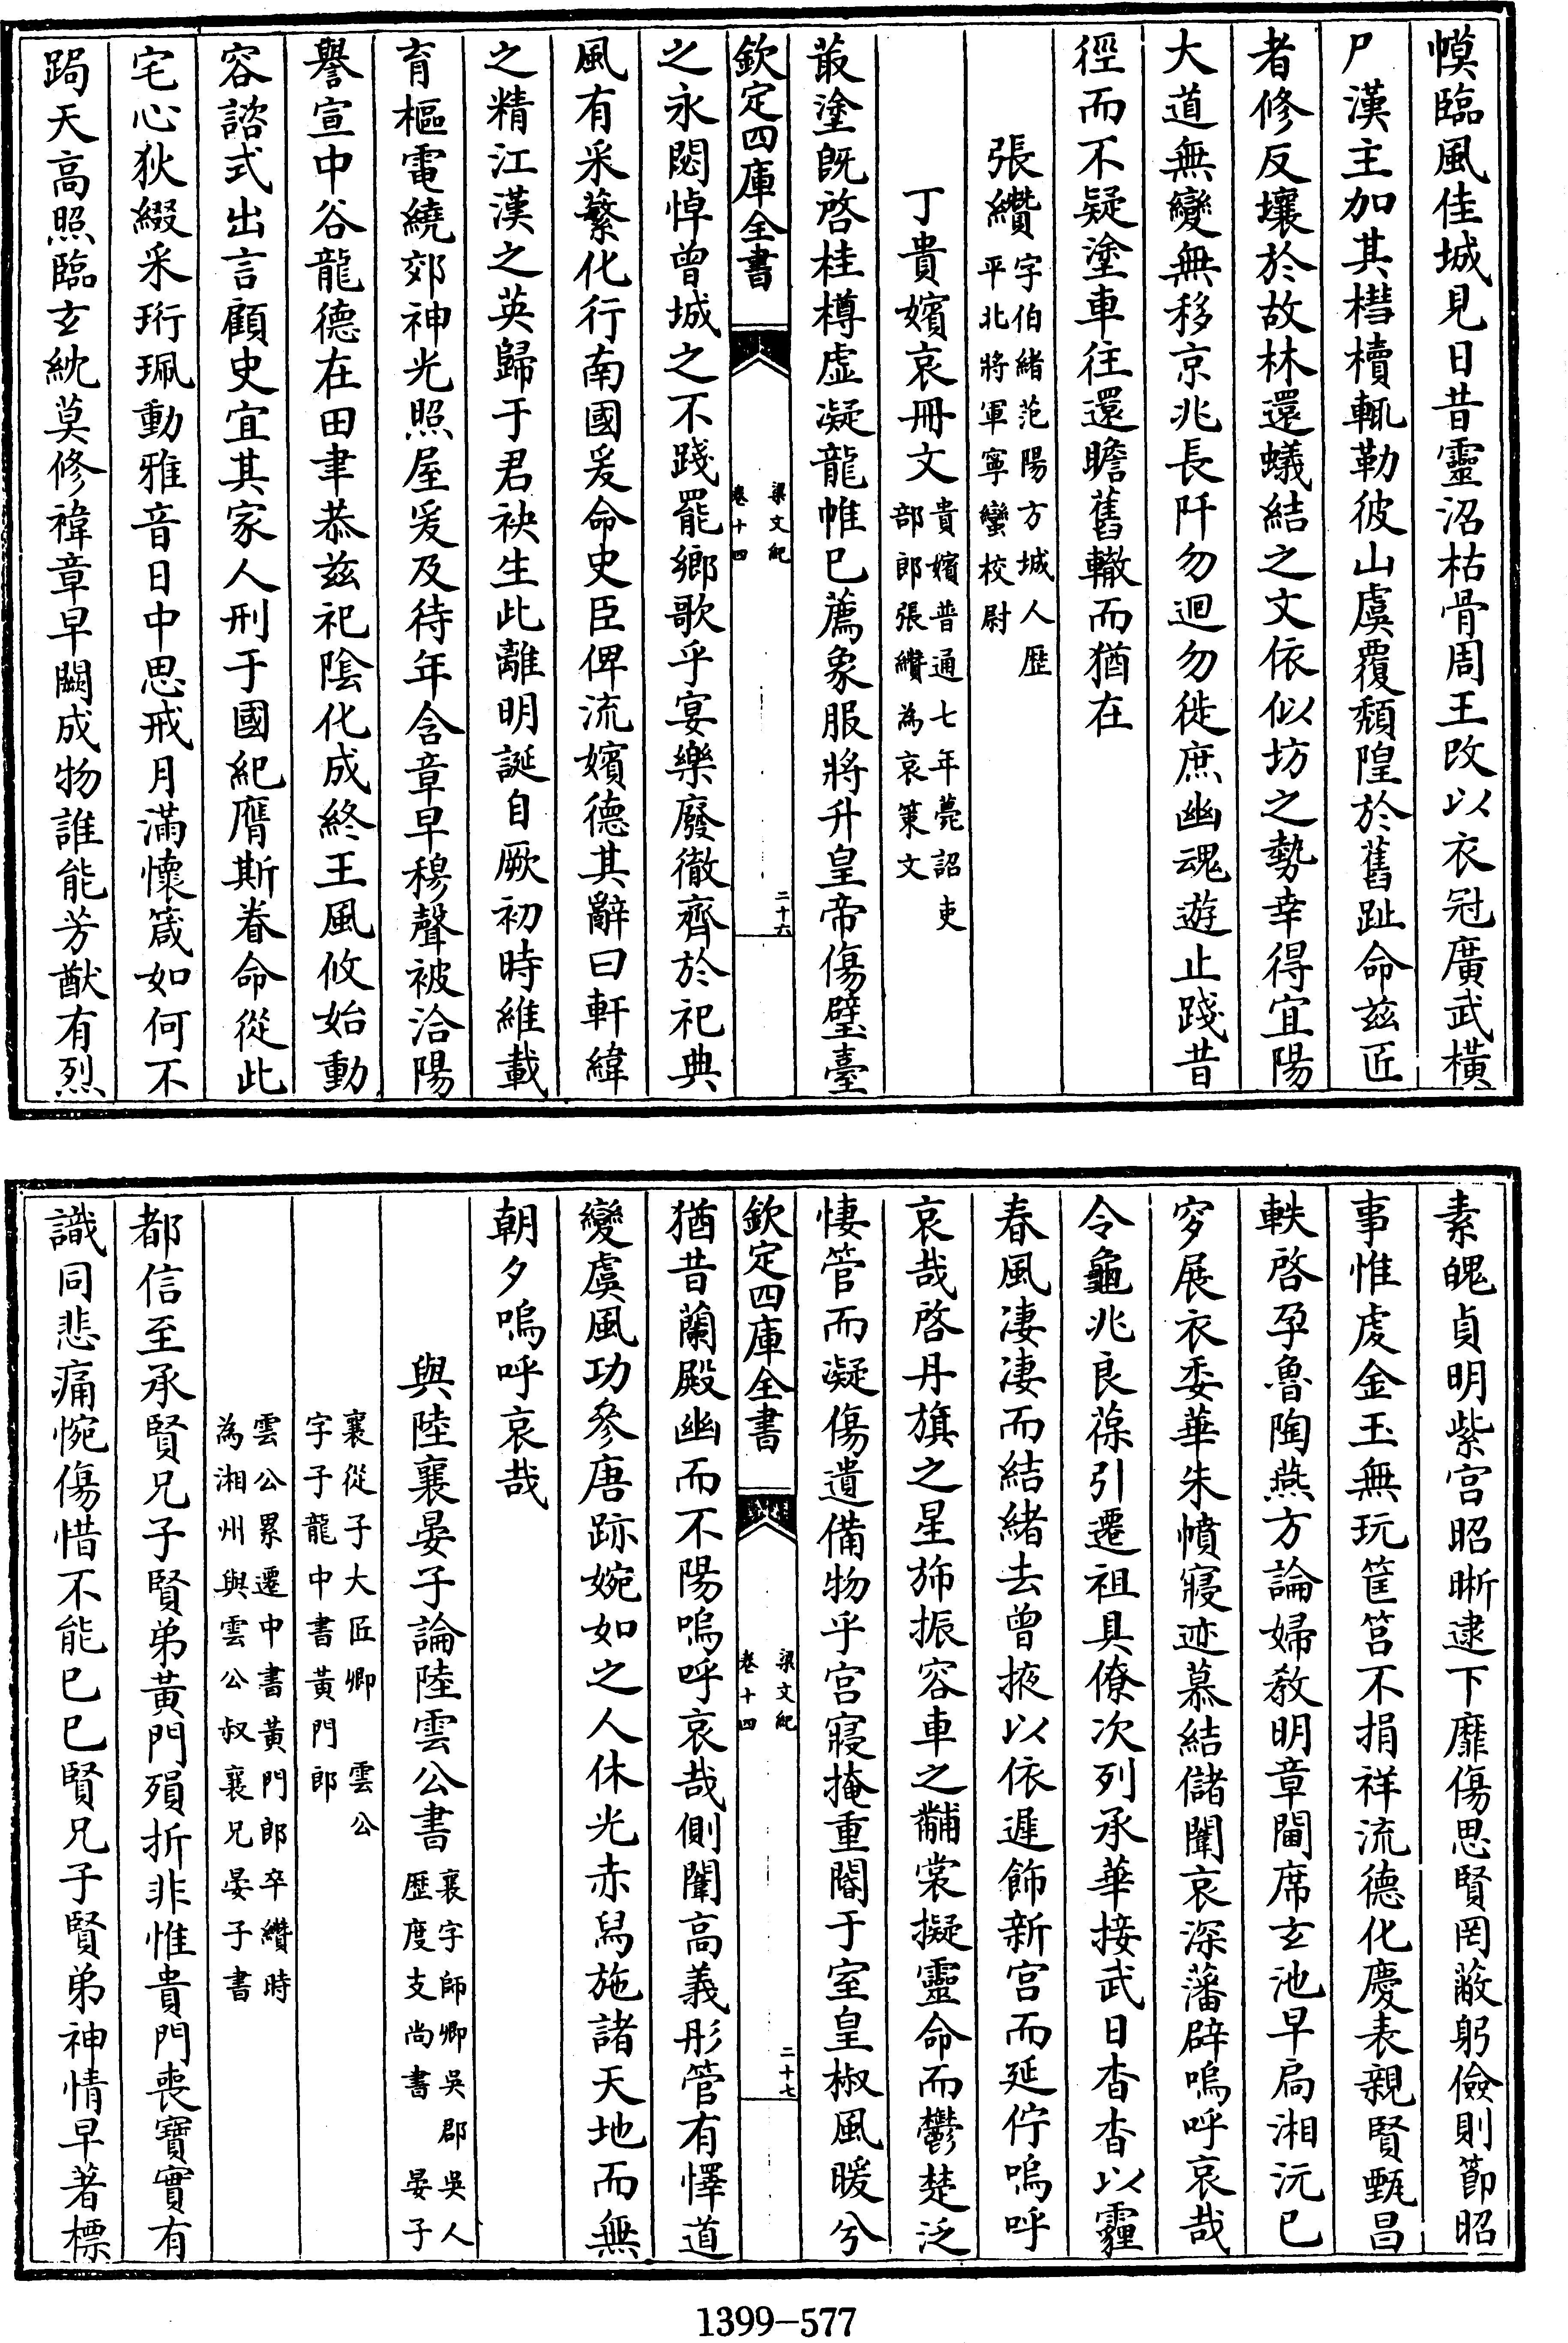 幙臨風佳城見日昔靈沼枯骨周王改以衣冠廣武橫
尸漢主加其槥櫝輒勒彼山虞覆頽隍於舊趾命兹匠
者修反壤於故林還蟻結之文依似坊之勢幸得宜陽
大道無變無移京兆長阡勿迴勿徙庶幽魂遊止踐昔
徑而不疑塗車往還瞻舊轍而猶在
張纘字伯緒范陽方城人歴
平北將軍寧蠻校尉
丁貴嬪哀冊文貴嬪普通七年薨詔吏
部郎張纘為哀策文
菆塗既啓桂樽虚凝龍帷已薦象服將升皇帝傷璧臺
欽定四庫全書
梁文紀
卷十四
二十六
之永閟悼曾城之不踐罷鄉歌乎宴樂廢徹齊於祀典
風有采蘩化行南國爰命史臣俾流嬪德其辭曰軒緯
之精江漢之英歸于君袂生此離明誕自厥初時維載
育樞電繞郊神光照屋爰及待年含章早穆聲被洽陽
譽宣中谷龍德在田聿恭兹祀陰化成終王風攸始動
容諮式出言顧史宜其家人刑于國紀膺斯眷命從此
宅心狄綴采珩珮動雅音日中思戒月滿懷箴如何不
跼天高照臨玄紞莫修褘章早闕成物誰能芳猷有烈
素魄貞明紫宫昭晰逮下靡傷思賢罔蔽躬儉則節昭
事惟虔金玉無玩筐筥不捐祥流德化慶表親賢甄昌
軼啓孕魯陶燕方論婦教明章閫席玄池早扃湘沅已
穸展衣委華朱幩寢迹慕結儲闈哀深藩辟嗚呼哀哉
令龜兆良葆引遷祖具僚次列承華接武日杳杳以霾
春風凄凄而結緒去曾掖以依遲飾新宫而延佇嗚呼
哀哉啓丹旗之星斾振容車之黼裳擬靈命而鬱楚泛
悽管而凝傷遺備物乎宫寢掩重閽于室皇椒風暖兮
欽定四庫全書
梁文紀
卷十四
二十七
猶昔蘭殿幽而不陽嗚呼哀哉側闈高義彤管有懌道
變虞風功參唐跡婉如之人休光赤舄施諸天地而無
朝夕嗚呼哀哉
與陸襄晏子論陸雲公書襄字師卿吳郡吳人
歴度支尚書 晏子
襄從子大匠卿 雲公
字子龍中書黃門郎
雲公累遷中書黃門郎卒纘時
為湘州與雲公叔襄兄晏子書
都信至承賢兄子賢弟黃門殞折非惟貴門喪寶實有
識同悲痛惋傷惜不能已已賢兄子賢弟神情早著標
1399-577